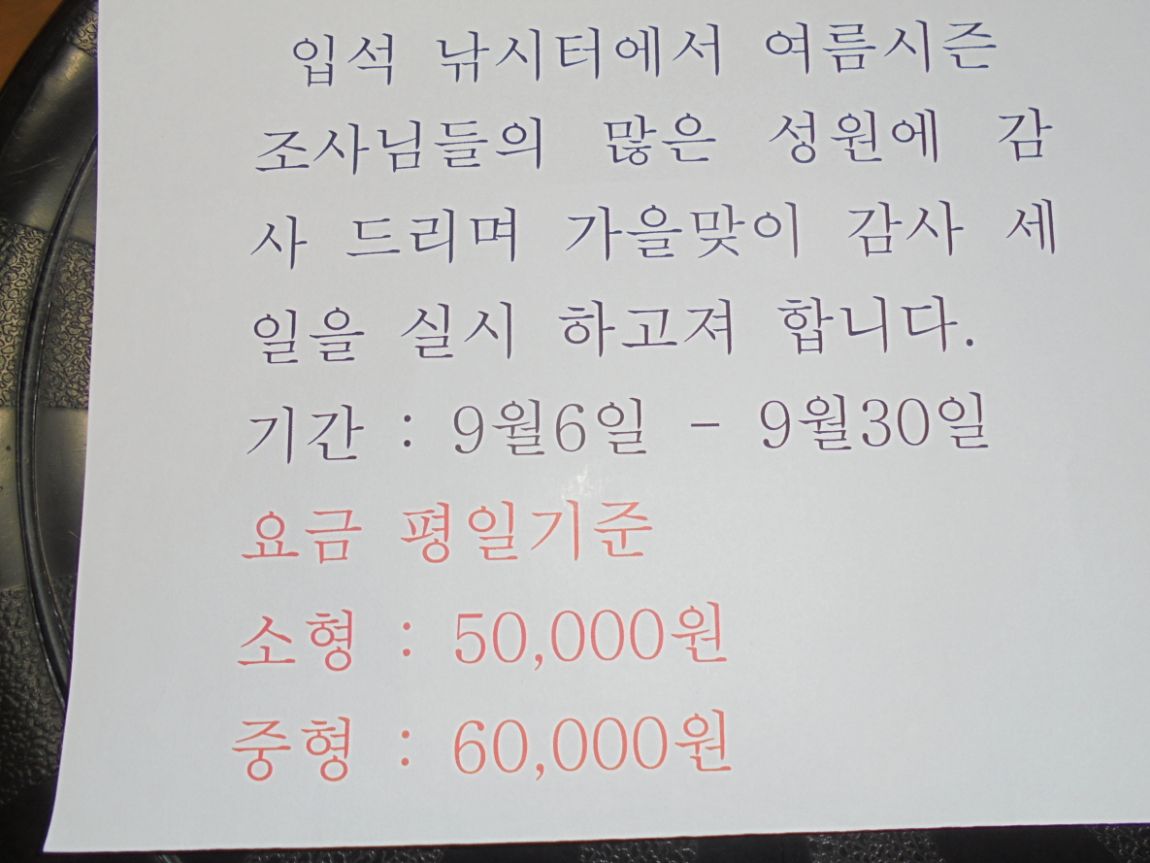 입석 낚시터에서 여름시즌
조사님들의 많은 성원에 감
사 드리며 가을맞이 감사 세
일을 실시 하고져 합니다.
기간 : 9월6일 - 9월30일
요금 평일기준
소형 : 50,000원
중형 : 60,000원